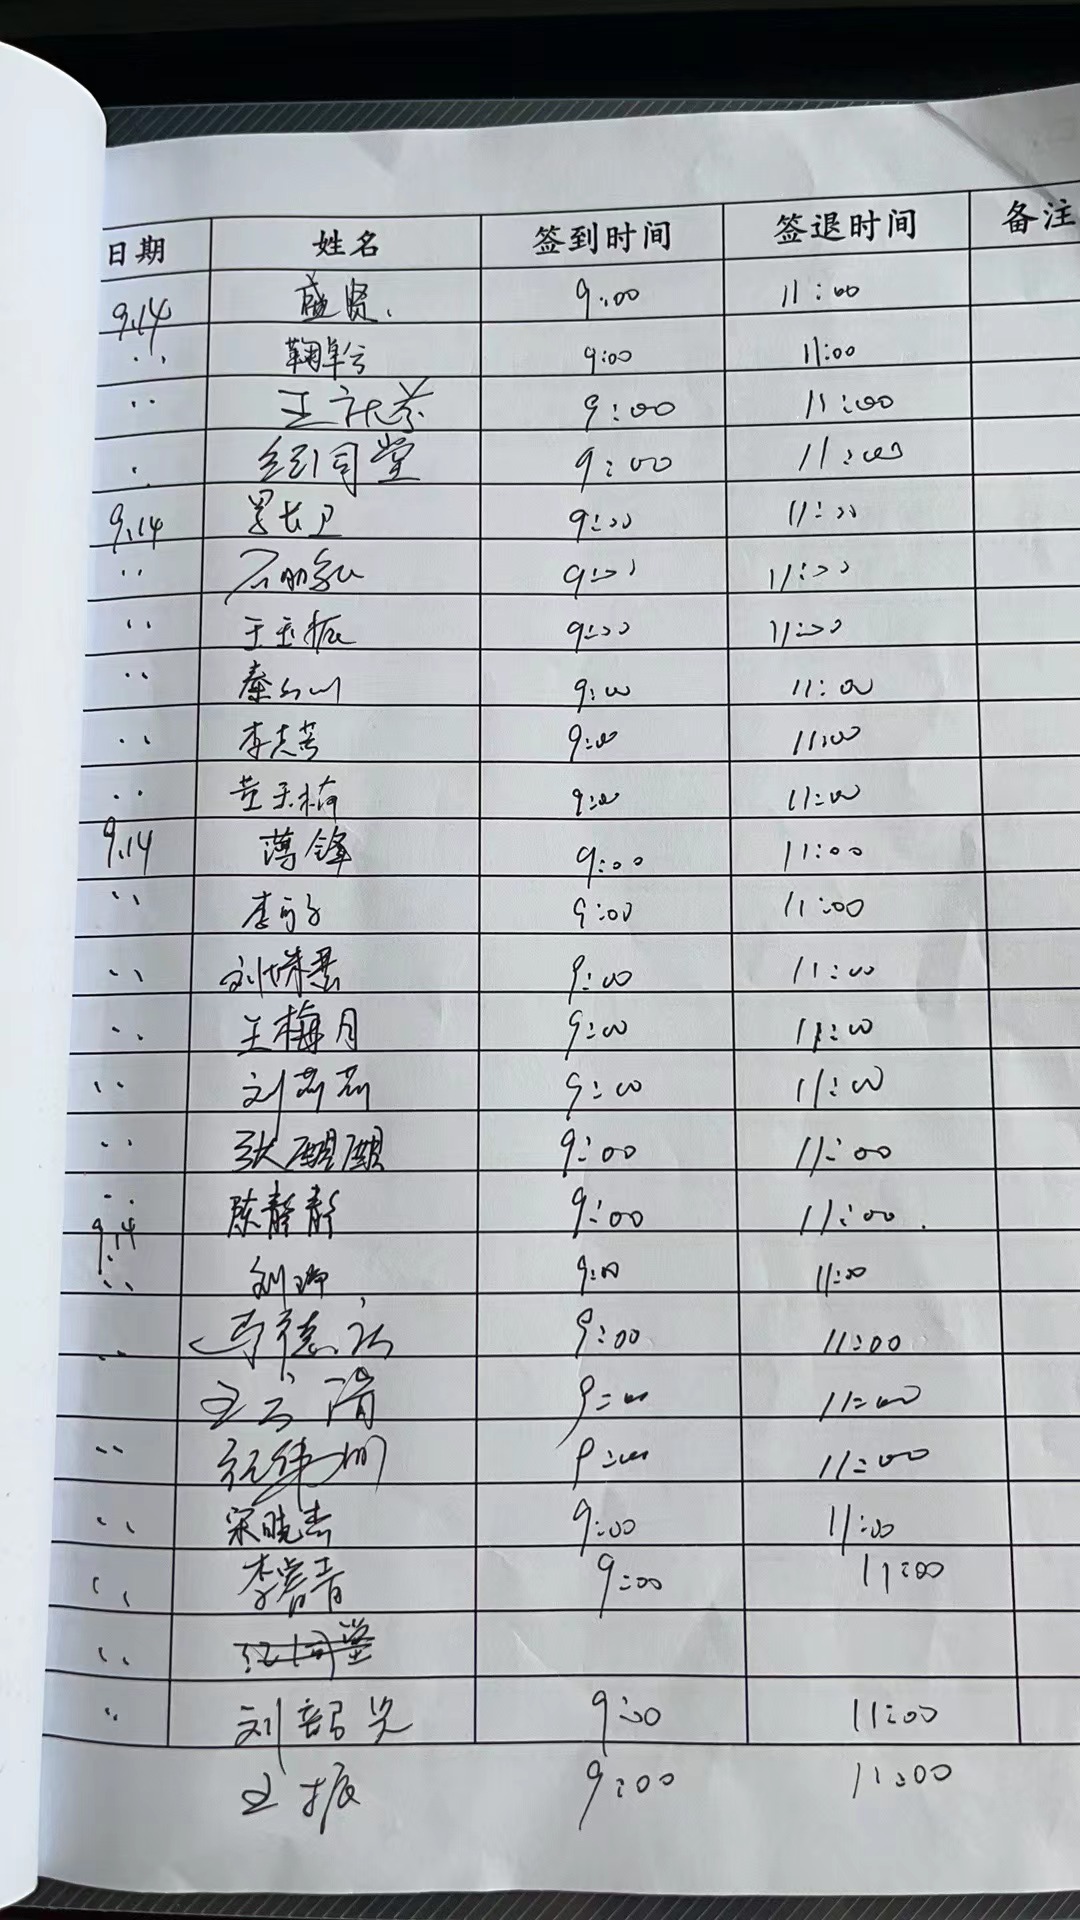 日期 姓名 签到时间 签退时间 备注
9.14 盛贤. 9:00 11:00
〃 鞠 9:00 11:00
〃 王 9:00 11:00
〃 司堂 9:00 11:00
9.14 长卫 9:00 11:00
〃 石 9:00 11:00
〃 王玉振 9:00 11:00
〃 秦 9:00 11:00
〃 李志芳 9:00 11:00
〃 董 9:00 11:00
9.14 薄锋 9:00 11:00
〃 李 9:00 11:00
〃 刘 9:00 11:00
〃 王梅月 9:00 11:00
〃 刘莉莉 9:00 11:00
〃 张醒醒 9:00 11:00
〃 陈静静 9:00 11:00
9.14
〃 刘 9:00 11:00
〃 德 9:00 11:00
王 9:00 11:00
〃 9:00 11:00
〃 宋晓杰 9:00 11:00
〃 李 9:00 11:00
〃
〃 刘 9:00 11:00
王振 9:00 11:00